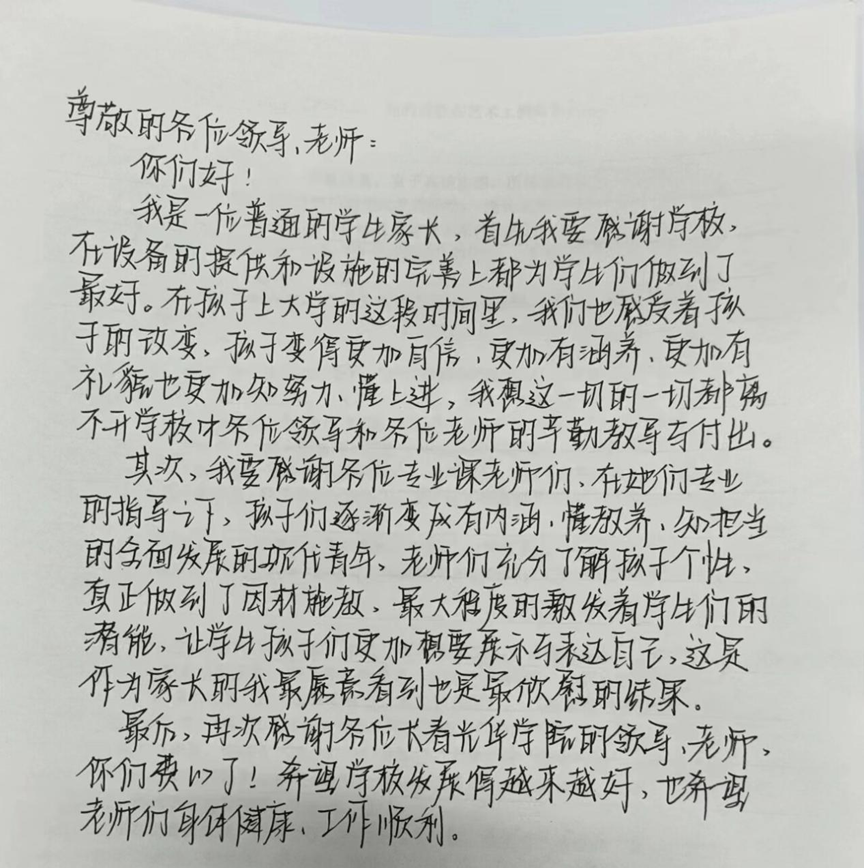 尊敬的各位领导、老师：
你们好！
我是一位普通的学生家长，首先我要感谢学校，
在设备的提供和设施的完善上都为学生们做到了
最好。在孩子上大学的这段时间里，我们也感受着孩
子的改变，孩子变得更加自信、更加有涵养、更加有
礼貌也更加知努力、懂上进，我想这一切的一切都离
不开学校中各位领导和各位老师的辛勤教导与付出。
其次，我要感谢各位专业课老师们，在她们专业
的指导之下，孩子们逐渐变成有内涵、懂教养、知担当
的全面发展的新代青年，老师们充分了解孩子个性，
真正做到了因材施教，最大程度的激发着学生们的
潜能，让学生孩子们更加想要展示与表达自己，这是
作为家长的我最愿意看到也是最欣慰的结果。
最后，再次感谢各位长春光华学院的领导、老师，
你们费心了！希望学校发展得越来越好，也希望
老师们身体健康、工作顺利。